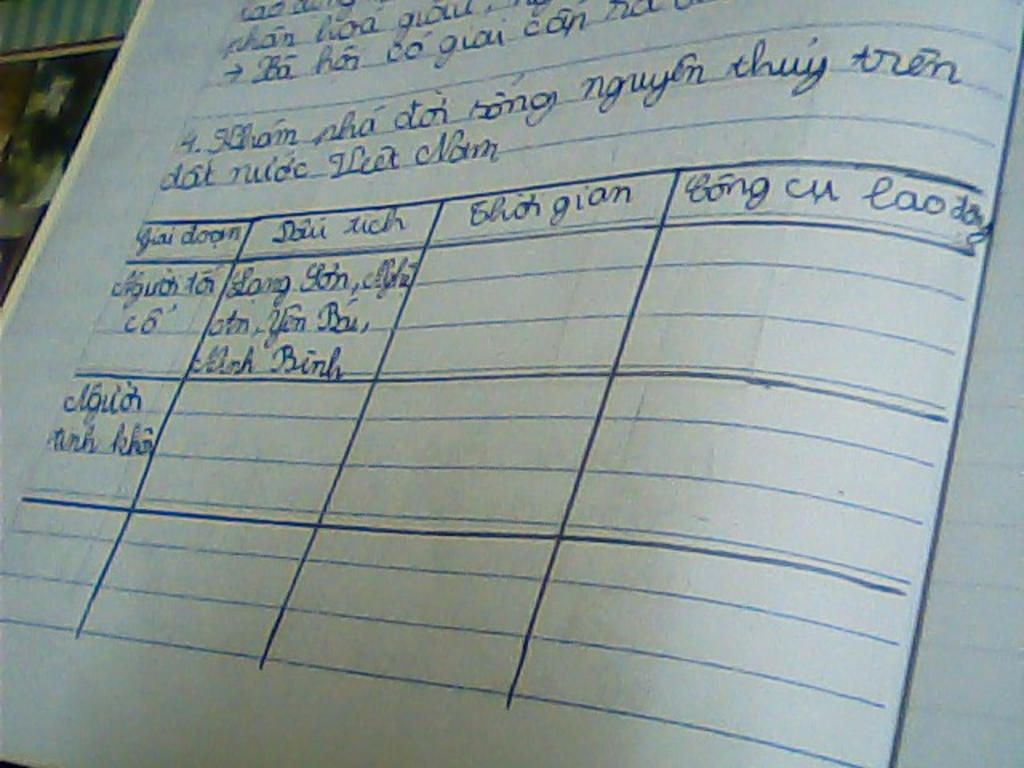 phân hóa giàu,
→ Xã hội có giai cấp ra
4. Khám phá đời sống nguyên thuỷ trên
đất nước Việt Nam
Giai đoạn Dấu tích Thời gian Công cụ lao động
Người tối cổ
Lạng Sơn, Nghệ
An, Yên Bái,
Ninh Bình
Người
tinh khôn